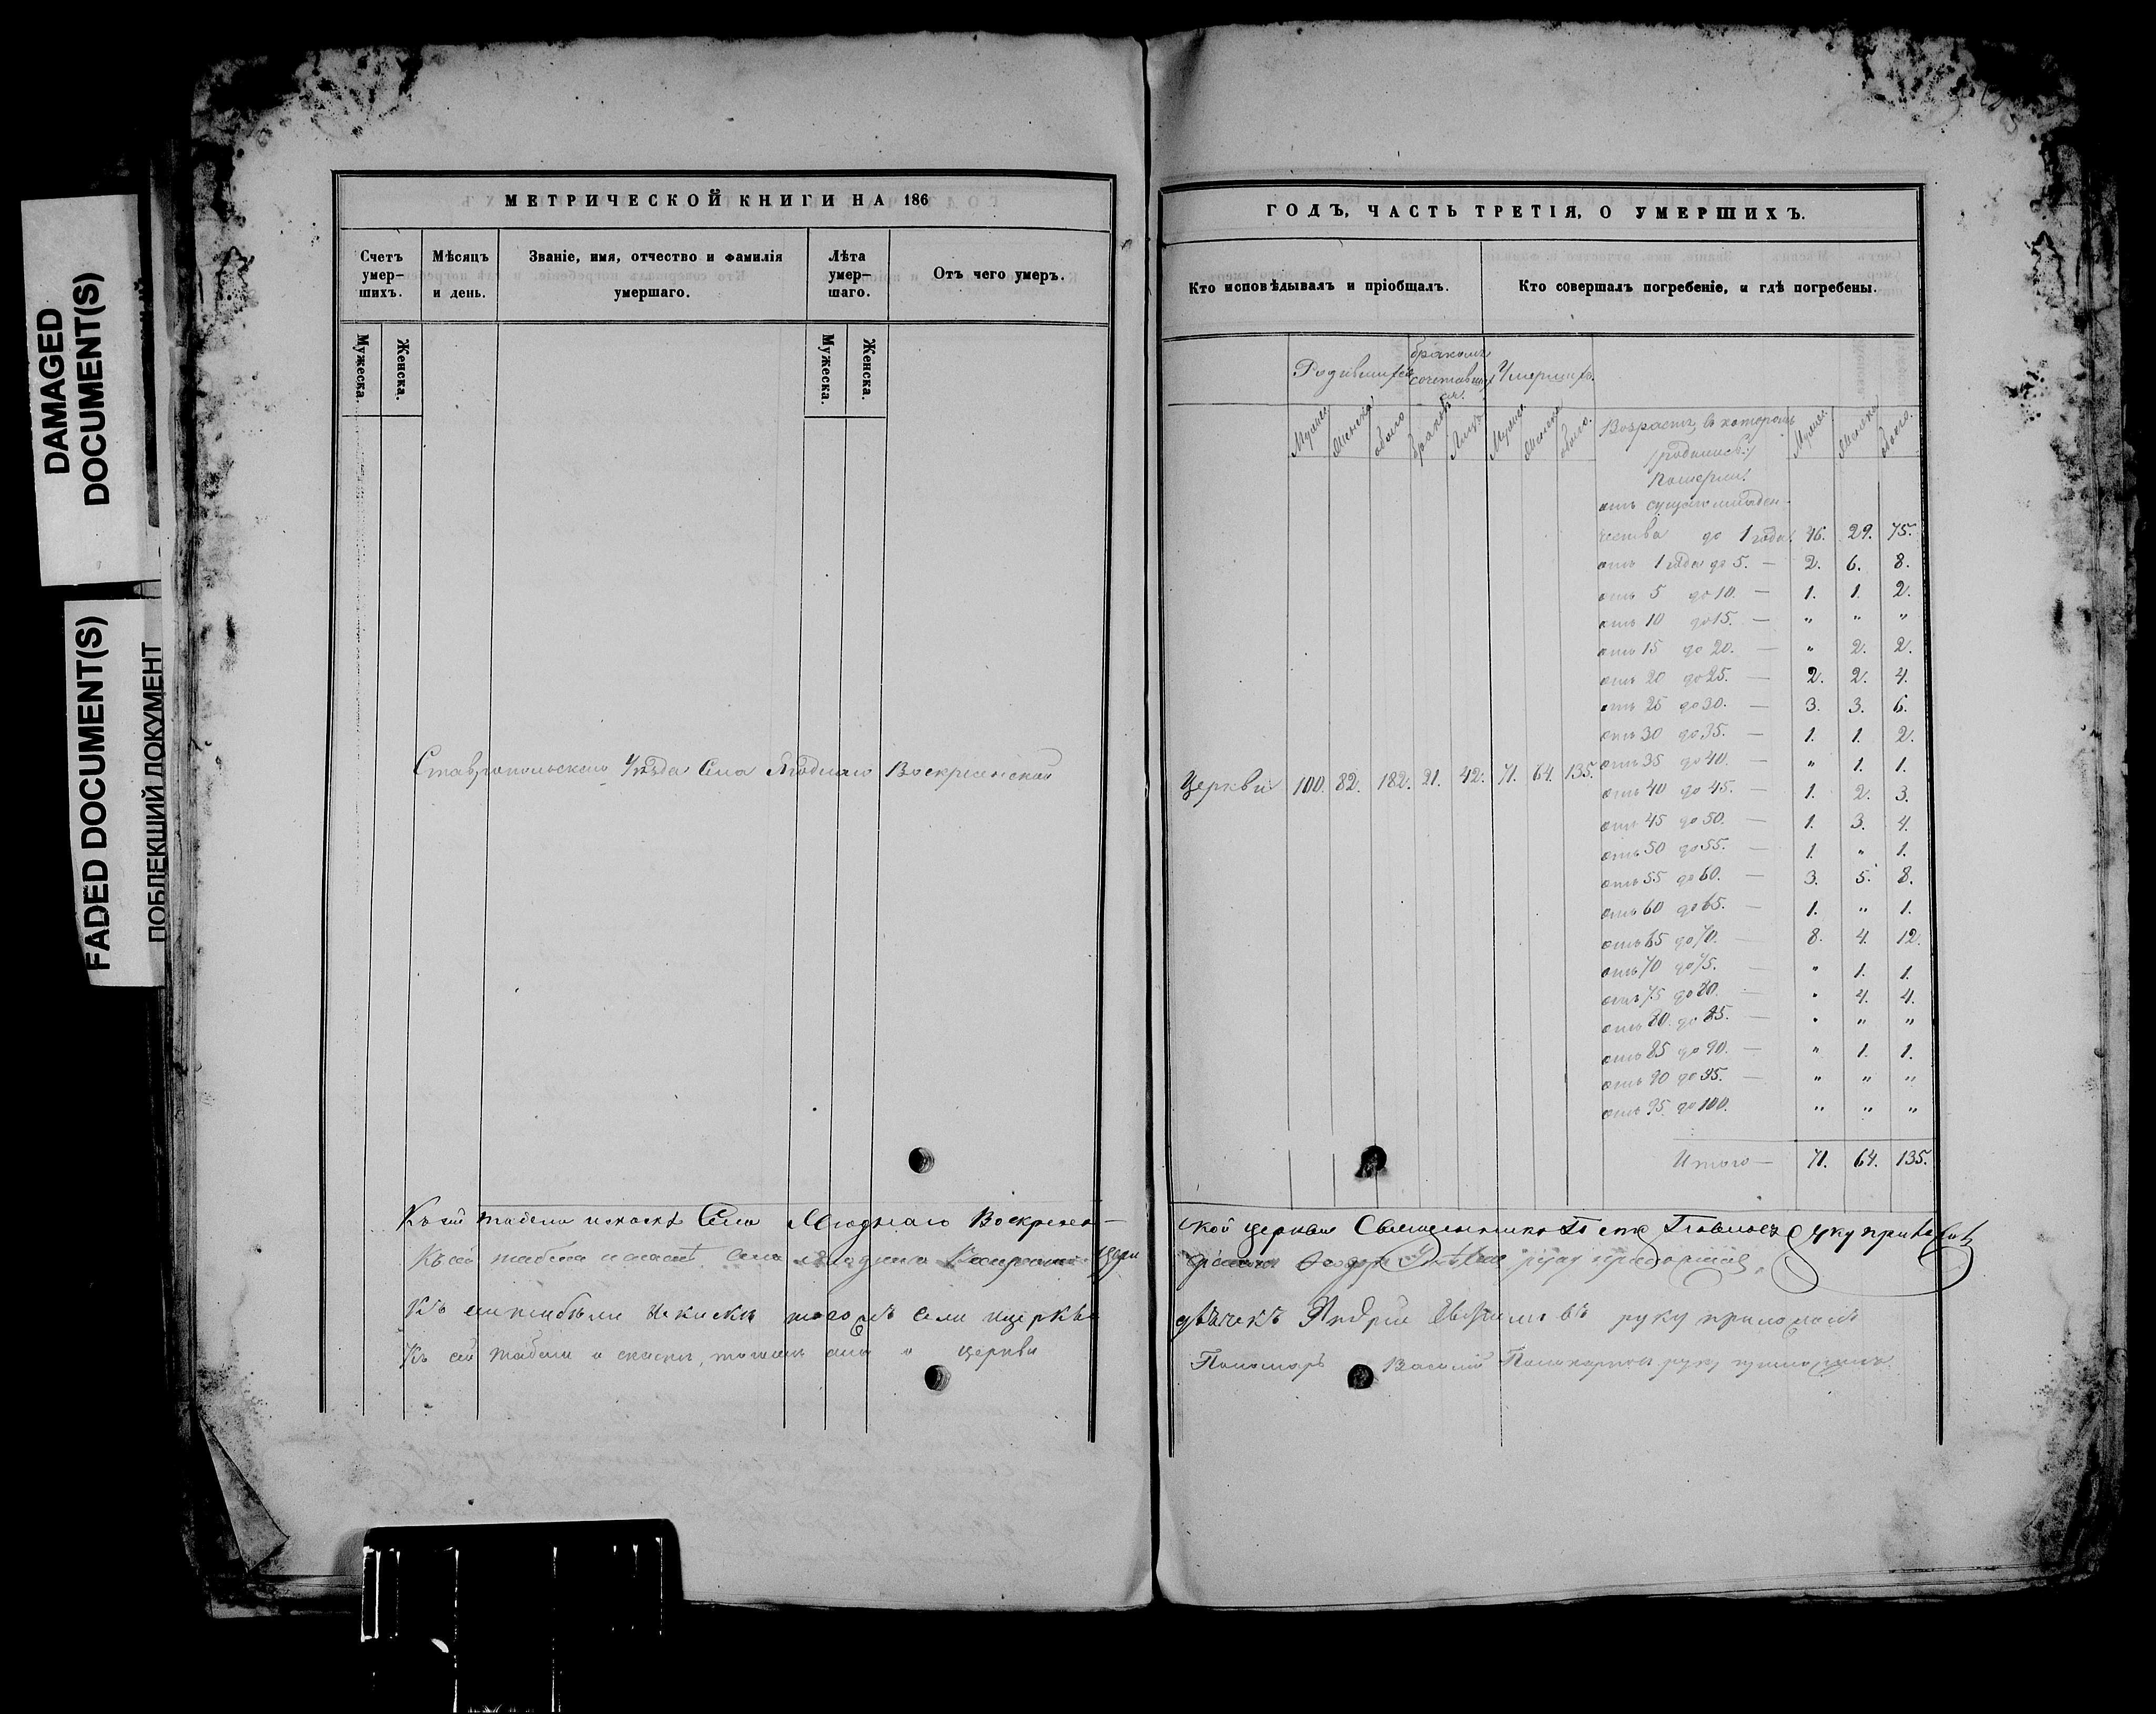 DAMAGED
DOCUMENT(S)
FADED DOCUMENT(S)
ПОБЛЕКШИЙ ДОКУМЕНТ
МЕТРИЧЕСКОЙ КНИГИ НА 186
Счетъ умер-шихъ.
Мѣсяцъ и день.
Званіе, имя, отчество и фамилія умершаго.
Лѣта умер-шаго.
Отъ чего умеръ.
Мужеска.
Женска.
Мужеска.
Женска.
Ставропольскаго Уѣзда Села Ягоднаго Воскресенской
Къ сей табели и сказкѣ Села Ягоднаго Воскресен-
Къ сей табели и сказкѣ села Ягоднаго
Къ сей табели и сказкѣ тогожъ села церкви
Къ сей табели и сказки, тогожъ села и церкви
ГОДЪ, ЧАСТЬ ТРЕТІЯ, О УМЕРШИХЪ.
Кто исповѣдывалъ и пріобщалъ.
Кто совершалъ погребеніе, и гдѣ погребены.
Родившихся
бракомъ сочетавшихся.
Умершихъ.
Мужеска
Женска
обоего
браковъ
Лицъ
Мужеска
Женска
обоего.
Возрастъ, въ которомъ
Померли.
Мужеска
Женска
обоего.
отъ сущаго младен-
чества до 1 года. 46. 29. 75.
отъ 1 года до 5. — 2. 6. 8.
отъ 5 до 10. — 1. 1. 2.
отъ 10 до 15. — " " "
отъ 15 до 20. — " 2. 2.
отъ 20 до 25. — 2. 2. 4.
отъ 25 до 30. — 3. 3. 6.
отъ 30 до 35. — 1. 1. 2.
отъ 35 до 40. — " 1. 1.
Церкви 100. 82. 182. 21. 42. 71. 64. 135.
отъ 40 до 45. — 1. 2. 3.
отъ 45 до 50. — 1. 3. 4.
отъ 50 до 55. — 1. " 1.
отъ 55 до 60. — 3. 5. 8.
отъ 60 до 65. — 1. " 1.
отъ 65 до 70. — 8. 4. 12.
отъ 70 до 75. — " 1. 1.
отъ 75 до 80. — " 4. 4.
отъ 80 до 85. — " " "
отъ 85 до 90. — " 1. 1.
отъ 90 до 95. — " " "
отъ 95 до 100. " " "
Итого — 71. 64. 135.
ской церкви Священникъ Петръ руку приложилъ
руку приложилъ
дьячекъ Андрей руку приложилъ
Пономарь Василий Поликарповъ руку приложилъ